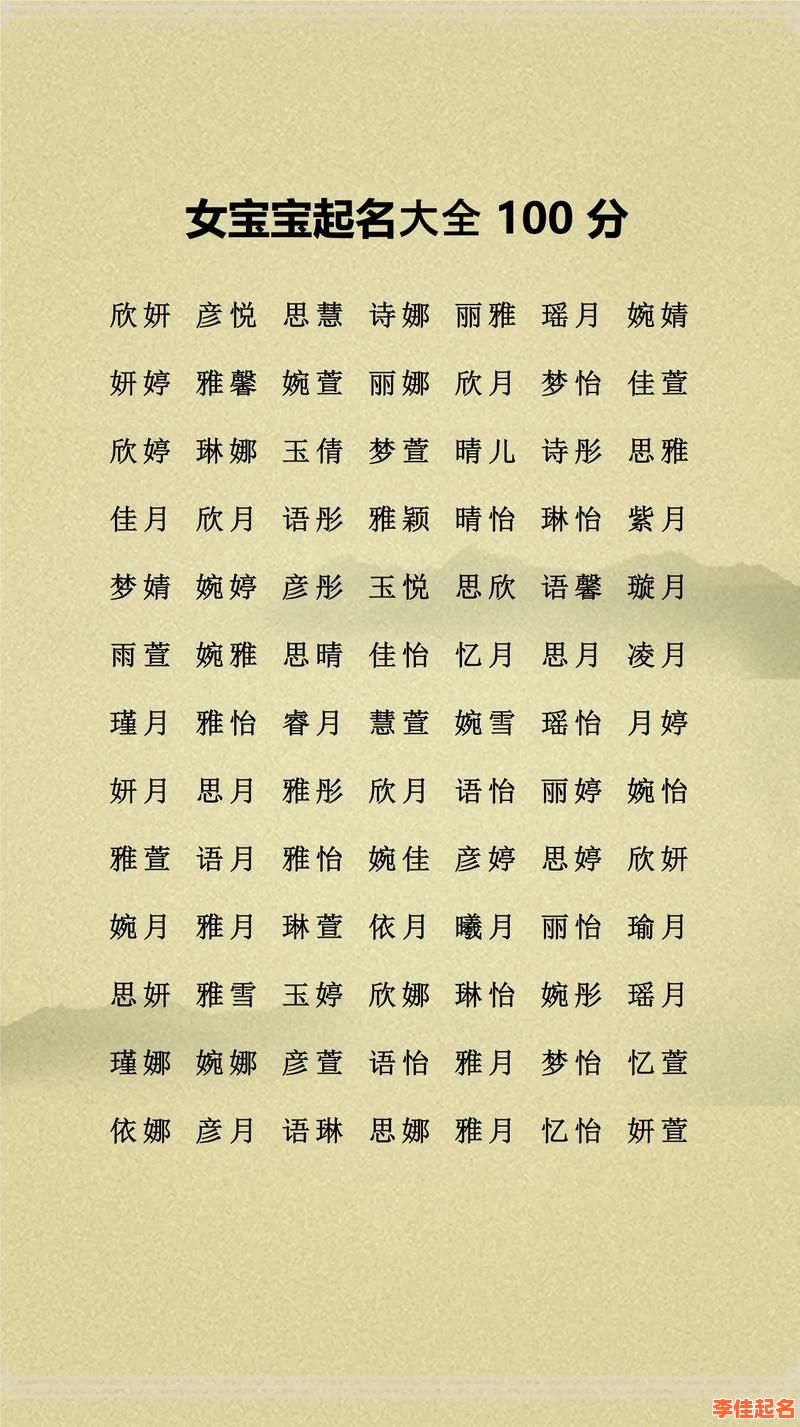 女宝宝起名大全 100 分
欣妍 彦悦 思慧 诗娜 丽雅 瑶月 婉婧
妍婷 雅馨 婉萱 丽娜 欣月 梦怡 佳萱
欣婷 琳娜 玉倩 梦萱 晴儿 诗彤 思雅
佳月 欣月 语彤 雅颖 晴怡 琳怡 紫月
梦婧 婉婷 彦彤 玉悦 思欣 语馨 璇月
雨萱 婉雅 思晴 佳怡 忆月 思月 凌月
瑾月 雅怡 睿月 慧萱 婉雪 瑶怡 月婷
妍月 思月 雅彤 欣月 语怡 丽婷 婉怡
雅萱 语月 雅怡 婉佳 彦婷 思婷 欣妍
婉月 雅月 琳萱 依月 曦月 丽怡 瑜月
思妍 雅雪 玉婷 欣娜 琳怡 婉彤 瑶月
瑾娜 婉娜 彦萱 语怡 雅月 梦怡 忆萱
依娜 彦月 语琳 思娜 雅月 忆怡 妍萱
李佳起名